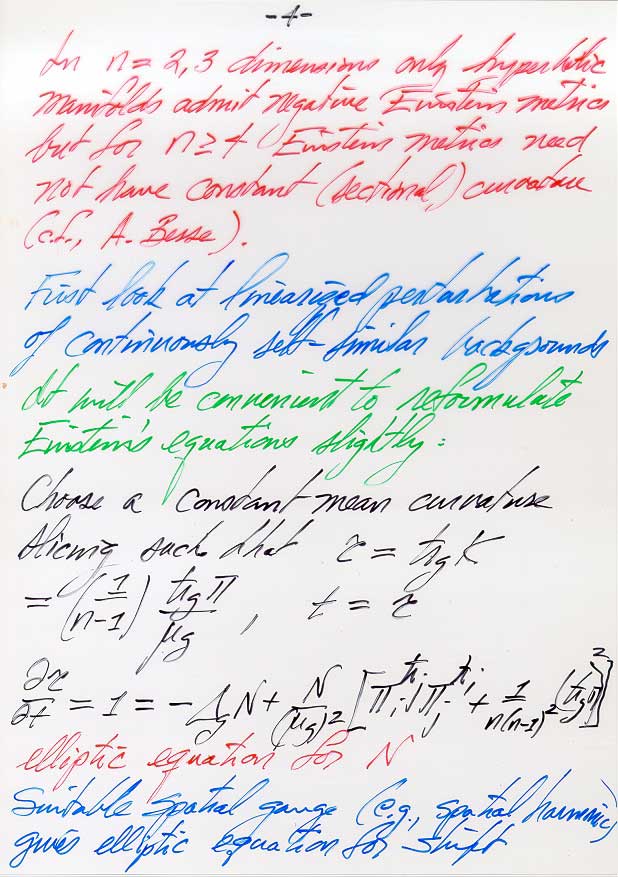 -4-
In n = 2, 3 dimensions only hyperbolic
manifolds admit negative Einstein metrics
but for n ≥ 4 Einstein metrics need
not have constant (sectional) curvature
(c.f., A. Besse).
First look at linearized perturbations
of continuously self-similar backgrounds
It will be convenient to reformulate
Einstein's equations slightly:
Choose a constant mean curvature
slicing such that τ = tr_g K
= (1/(n-1)) tr_g π / μ_g , t = τ
∂τ/∂t = 1 = -Δ_g N + N/(μ_g)² [π^{tr i}_j π^{tr j}_i + 1/(n(n-1)²) (tr_g π)²]
elliptic equation for N
Suitable spatial gauge (e.g., spatial harmonic)
gives elliptic equation for shift